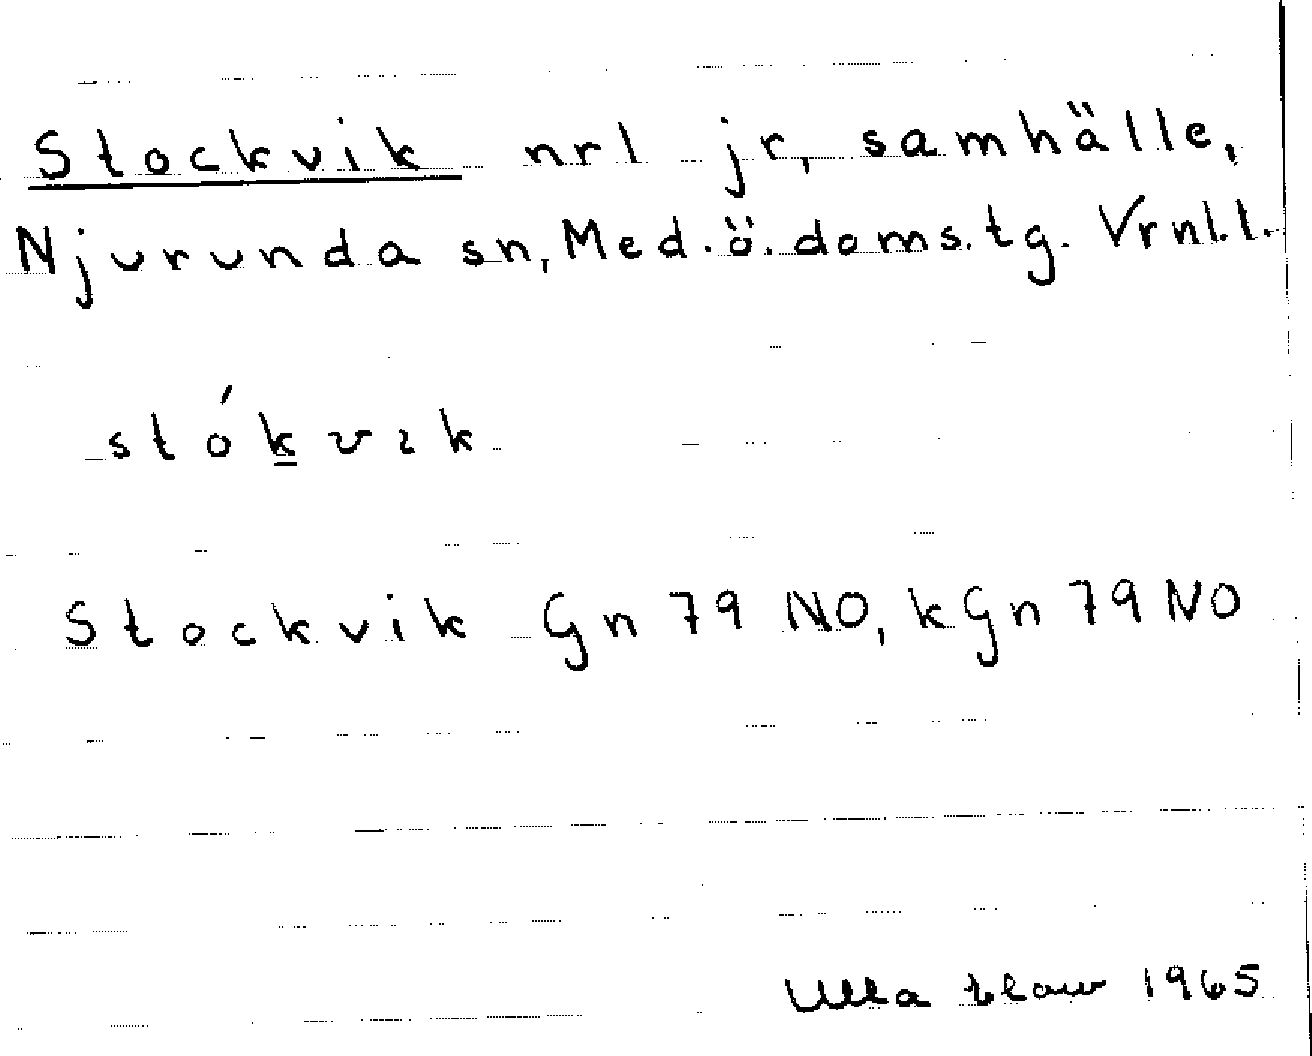 Stockvik nrl jr, samhälle,
Njurunda sn, Med.ö.doms.tg. Vrnl.l.
stókvɩk
Stockvik Gn 79 NO, kGn 79 NO
Ulla 1965